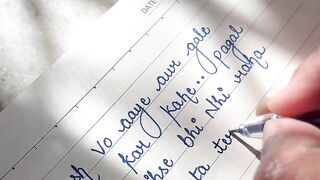 DATE
Vo aaye aur gale
kar kahe.. pagal
hse bhi Nhi raha
ta te